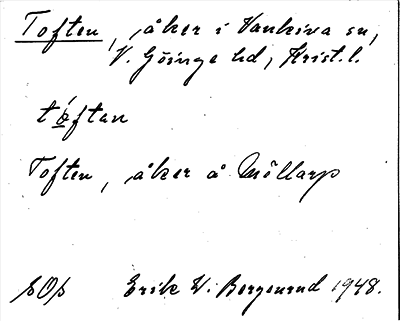 Toften, åker i Vankiva sn,
V. Göinge hd, Krist. l.
tóftan
Toften, åker å Möllarp
SOS Erik W. Bergenrud 1948.